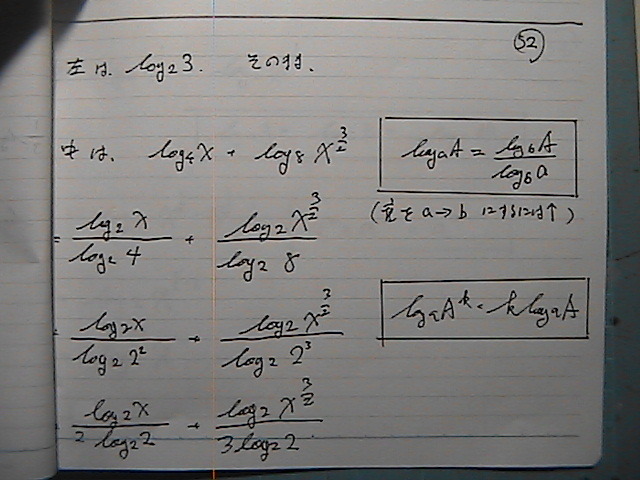 52
左は. log₂3. そのまま.
中は. log₄x + log₈x^(3/2)
log_a A = log_b A / log_b a
(底を a→b にするには↑)
= log₂x / log₂4 + log₂x^(3/2) / log₂8
= log₂x / log₂2² + log₂x^(3/2) / log₂2³
log_a A^k = k log_a A
log₂x / 2log₂2 + log₂x^(3/2) / 3log₂2